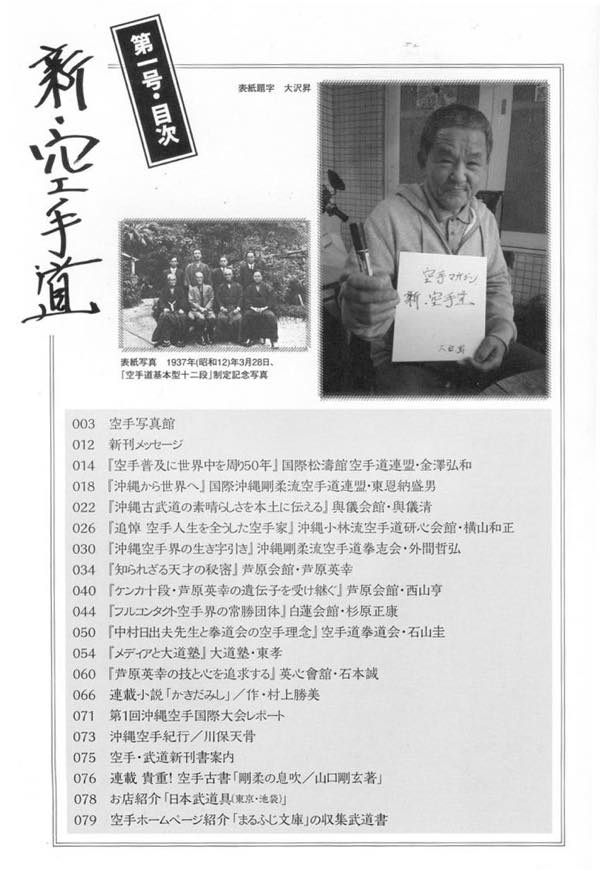 第一号・目次
新・空手道
表紙題字 大沢昇
空手マガジン
新・空手道
大沢昇
表紙写真 1937年(昭和12)年3月28日、
「空手道基本型十二段」制定記念写真
003 空手写真館
012 新刊メッセージ
014 『空手普及に世界中を周り50年』国際松濤館空手道連盟・金澤弘和
018 『沖縄から世界へ』国際沖縄剛柔流空手道連盟・東恩納盛男
022 『沖縄古武道の素晴らしさを本土に伝える』與儀会館・與儀清
026 『追悼 空手人生を全うした空手家』沖縄小林流空手道研心会館・横山和正
030 『沖縄空手界の生き字引き』沖縄剛柔流空手道拳志会・外間哲弘
034 『知られざる天才の秘密』芦原会館・芦原英幸
040 『ケンカ十段・芦原英幸の遺伝子を受け継ぐ』芦原会館・西山亨
044 『フルコンタクト空手界の常勝団体』白蓮会館・杉原正康
050 『中村日出夫先生と拳道会の空手理念』空手道拳道会・石山圭
054 『メディアと大道塾』大道塾・東孝
060 『芦原英幸の技と心を追求する』英心會舘・石本誠
066 連載小説「かきだみし」／作・村上勝美
071 第1回沖縄空手国際大会レポート
073 沖縄空手紀行／川保天骨
075 空手・武道新刊書案内
076 連載 貴重! 空手古書「剛柔の息吹／山口剛玄著」
078 お店紹介「日本武道具(東京・池袋)」
079 空手ホームページ紹介「まるふじ文庫」の収集武道書